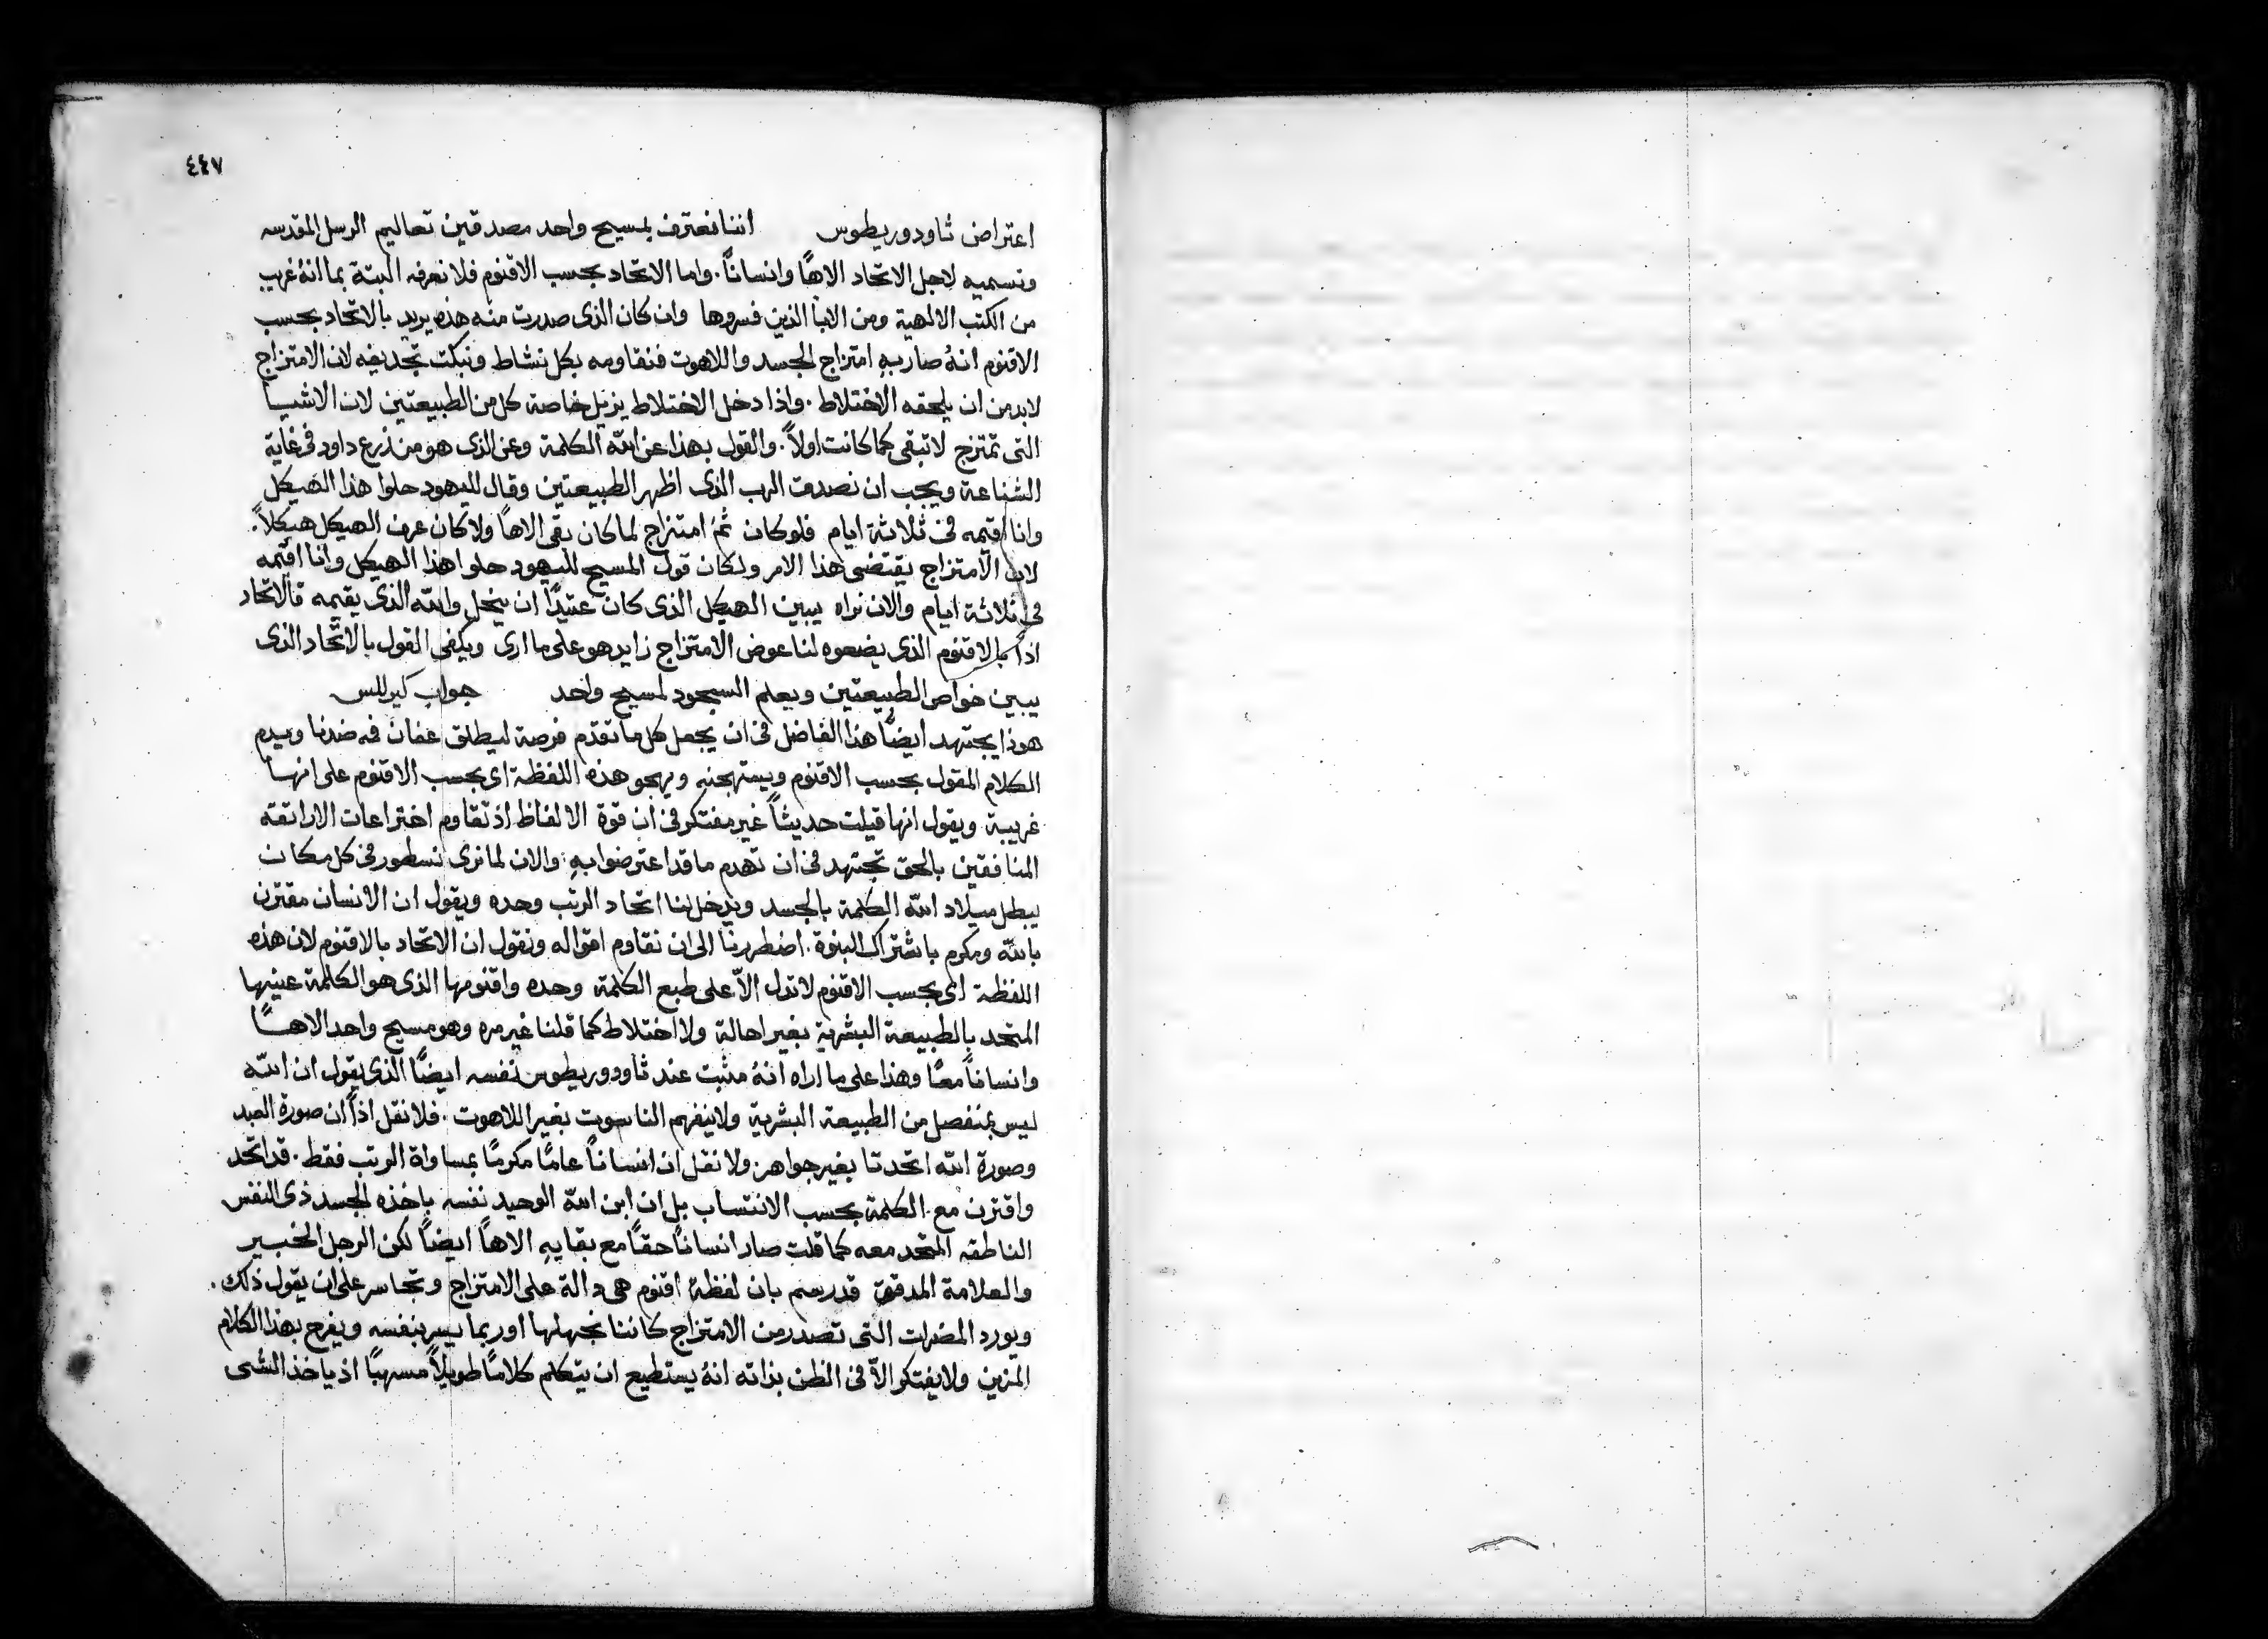 ٤٤٧
اعتراض ثاودوريطوس اننا نعترف بمسيح واحد مصدقين تعاليم الرسل المقدسه
ونسميه لاجل الاتحاد الاهاً وانساناً. واما الاتحاد بحسب الاقنوم فلا نعرفه البتة بما انهُ غريب
من الكتب الالهية ومن الابا الذين فسروها وان كان الذى صدرت منه هذه يريد بالاتحاد بحسب
الاقنوم انهُ صار بهِ امتزاج الجسد واللاهوت فنقاومه بكل نشاط ونبكت تجديفه لان الامتزاج
لابد من ان يلحقه الاختلاط. واذا دخل الاختلاط يزيل خاصة كل من الطبيعتين لان الاشيا
التى تمتزج لا تبقى كما كانت اولاً. والقول بهذا عن الله الكلمة وعن الذى هو من زرع داود فى غاية
الشناعة ويجب ان نصدق الرب الذى اظهر الطبيعتين وقال لليهود حلوا هذا الهيكل
وانا اقيمه فى ثلاثة ايام فلو كان ثمَ امتزاج لما كان بقى الاهاً ولا كان عرف الهيكل هيكلاً.
لان الامتزاج يقتضى هذا الامر ولكان قول المسيح لليهود حلوا هذا الهيكل وانا اقيمه
فى ثلاثة ايام والان نراه يبين الهيكل الذى كان عتيدًا ان ينحل والله الذى يقيمه فالاتحاد
اذاً بالاقنوم الذى يضعوه لنا عوض الامتزاج زايد هو على ما ارى ويكفى القول بالاتحاد الذى
يبين خواص الطبيعتين ويعلم السجود لمسيح واحد جواب كيرللس
هوذا يجتهد ايضًا هذا الفاضل فى ان يجعل كل ما تقدم فرصة ليطلق عنان فه ضدنا ويذم
الكلام المقول بحسب الاقنوم ويستهجنه ويهجو هذه اللفظة اى بحسب الاقنوم على انها
غريبة ويقول انها قيلت حديثاً غير مفتكر فى ان قوة الالفاظ اذ تقاوم اختراعات الاراتقه
المنافقين بالحق تجتهد فى ان تهدم ما قد اعترضوا بهِ. والان لما نرى نسطور فى كل مكان
يبطل ميلاد الله الكلمة بالجسد ويدخل لنا اتحاد الرتب وحده ويقول ان الانسان مقترن
بالله ومكرم باشتراك البنوة. اضطررنا الى ان نقاوم اقواله ونقول ان الاتحاد بالاقنوم لان هذه
اللفظة اى بحسب الاقنوم لا تدل الاّ على طبع الكلمة وحده واقنومها الذى هو الكلمة عينها
المتحد بالطبيعة البشرية بغير احالة ولا اختلاط كما قلنا غير مره وهو مسيح واحد الاهاً
وانساناً معًا وهذا على ما اراه انهُ مثبت عند ثاودوريطوس نفسه ايضًا الذى يقول ان الله
ليس بمنفصل من الطبيعة البشرية ولا ينفهم الناسوت بغير اللاهوت. فلا نقل اذاً ان صورة العبد
وصورة الله اتحدتا بغير جواهر. ولا نقل ان انساناً عامًا مكرمًا بمساواة الرتب فقط. قد اتحد
واقترن مع الكلمة بحسب الانتساب بل ان ابن الله الوحيد نفسه باخذه الجسد ذى النفس
الناطقه المتحد معه كما قلت صار انساناً حقًا مع بقايهِ الاهاً ايضًا لكن الرجل الخبير
والعلامة المدقق قد رسم بان لفظة اقنوم هى دالة على الامتزاج وتجاسر على ان يقول ذلك.
ويورد المضرات التى تصدر من الامتزاج كاننا نجهلها اوربما يسر بنفسه ويفرح بهذا الكلام
المزين ولا يفتكر الاّ فى الظن بذاته انهُ يستطيع ان يتكلم كلامًا طويلاً مسهبًا اذ ياخذ الشى